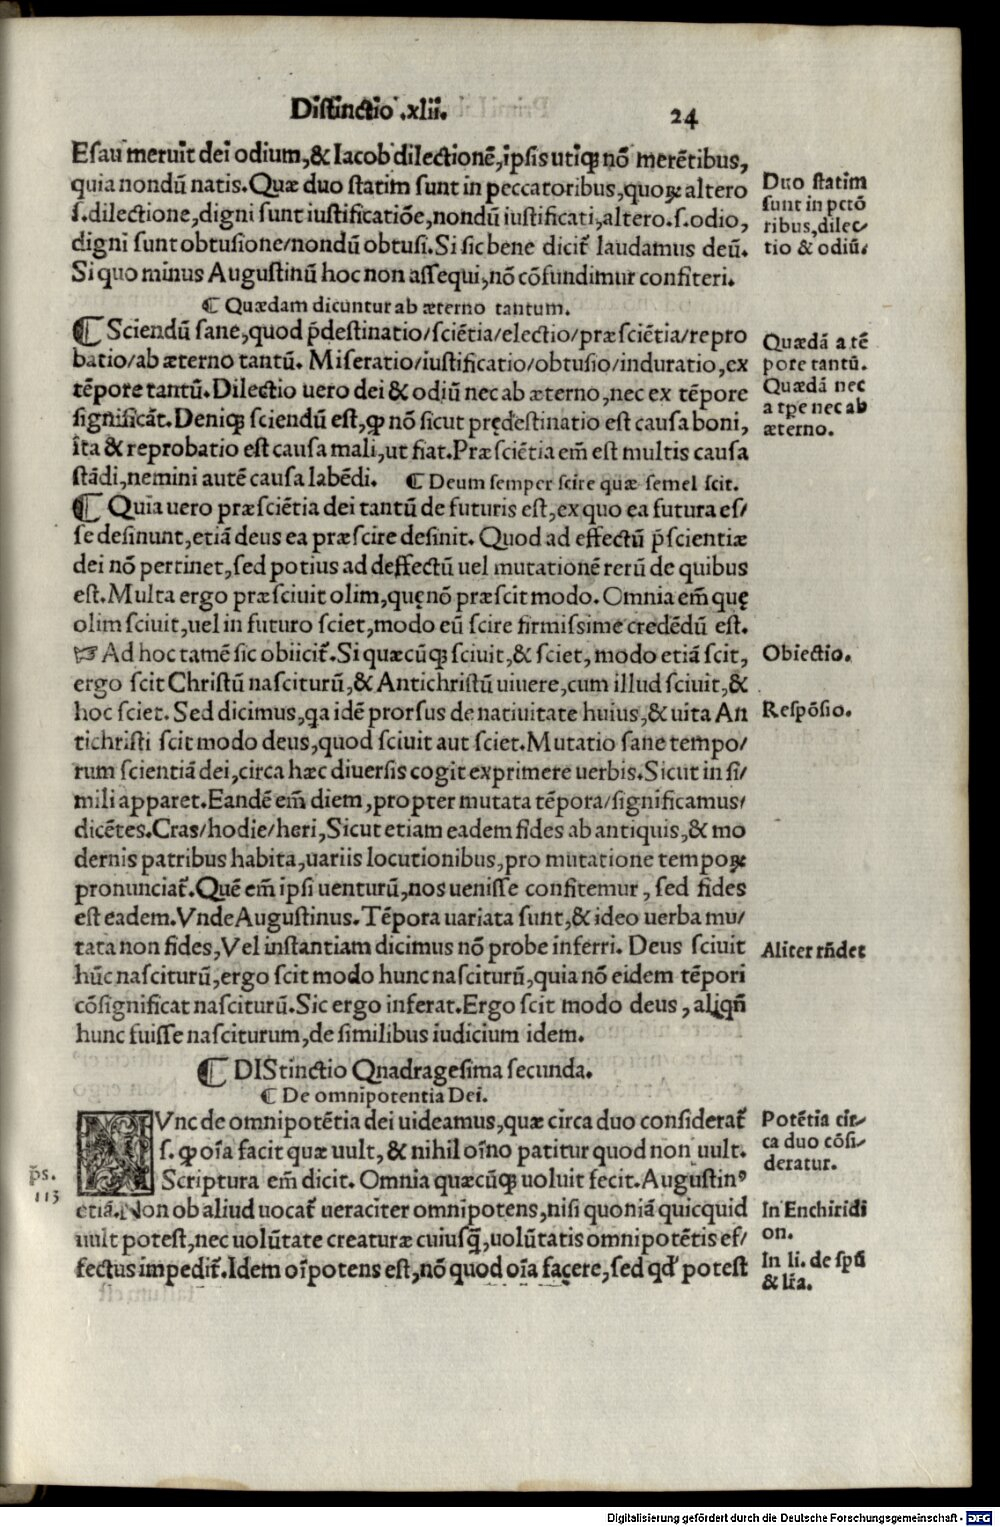 Distinctio .xlii. 24
Esau meruit dei odium,& Iacob dilectionē,ipsis utiqꝫ nō merētibus,
quia nondū natis.Quæ duo statim sunt in peccatoribus,quoꝝ altero
s.dilectione,digni sunt iustificatiōe,nondū iustificati,altero.s.odio,
digni sunt obtusione/nondū obtusi.Si sic bene dicit̃ laudamus deū.
Si quo minus Augustinū hoc non assequi,nō cōfundimur confiteri.
Duo statim
sunt in pctō
ribus,dilec⸗
tio & odiū.
¶ Quædam dicuntur ab æterno tantum.
¶ Sciendū sane,quod p̄destinatio/sciētia/electio/præsciētia/repro
batio/ab æterno tantū. Miseratio/iustificatio/obtusio/induratio,ex
tēpore tantū.Dilectio uero dei & odiū nec ab æterno,nec ex tēpore
significāt.Deniqꝫ sciendū est,ꝙ nō sicut prędestinatio est causa boni,
ita & reprobatio est causa mali,ut fiat.Præsciētia em̄ est multis causa
stādi,nemini autē causa labēdi. ¶ Deum semper scire quæ semel scit.
Quædā a tē
pore tantū.
Quædā nec
a tp̄e nec ab
æterno.
¶ Quia uero præsciētia dei tantū de futuris est,ex quo ea futura es/
se desinunt,etiā deus ea præscire desinit. Quod ad effectū p̄scientiæ
dei nō pertinet,sed potius ad deffectū uel mutationē rerū de quibus
est.Multa ergo præsciuit olim,quę nō præscit modo. Omnia em̄ quę
olim sciuit,uel in futuro sciet,modo eū scire firmissime credēdū est.
☞ Ad hoc tamē sic obiicit̃.Si quæcūqꝫ sciuit,& sciet, modo etiā scit,
ergo scit Christū nasciturū,& Antichristū uiuere,cum illud sciuit,&
hoc sciet.Sed dicimus,qa idē prorsus de natiuitate huius,& uita An
tichristi scit modo deus,quod sciuit aut sciet.Mutatio sane tempo/
rum scientiā dei,circa hæc diuersis cogit exprimere uerbis.Sicut in si/
mili apparet.Eandē em̄ diem,propter mutata tēpora/significamus/
dicētes.Cras/hodie/heri,Sicut etiam eadem fides ab antiquis,& mo
dernis patribus habita,uariis locutionibus,pro mutatione tempoꝝ
pronunciat̃.Quē em̄ ipsi uenturū,nos uenisse confitemur, sed fides
est eadem.Vnde Augustinus.Tēpora uariata sunt,& ideo uerba mu/
tata non fides,Vel instantiam dicimus nō probe inferri. Deus sciuit
hūc nasciturū,ergo scit modo hunc nasciturū,quia nō eidem tēpori
cōsignificat nasciturū.Sic ergo inferat.Ergo scit modo deus, aliqn̄
hunc fuisse nasciturum,de similibus iudicium idem.
Obiectio.
Respōsio.
Aliter rn̄det
¶ DIStinctio Quadragesima secunda.
¶ De omnipotentia Dei.
NVnc de omnipotētia dei uideamus,quæ circa duo considerat̃
s. ꝙ oīa facit quæ uult, & nihil oīno patitur quod non uult.
Scriptura em̄ dicit. Omnia quæcūqꝫ uoluit fecit. Augustinꝰ
etiā.Non ob aliud uocat̃ ueraciter omnipotens,nisi quoniā quicquid
uult potest,nec uolūtate creaturæ cuiusq̄,uolūtatis omnipotētis ef/
fectus impedit̃.Idem oīpotens est,nō quod oīa facere,sed qđ potest
p̄s.
113
Potētia cir⸗
ca duo cōsi⸗
deratur.
In Enchiridi
on.
In li. de spū
& lr̄a.
Digitalisierung gefördert durch die Deutsche Forschungsgemeinschaft - DFG